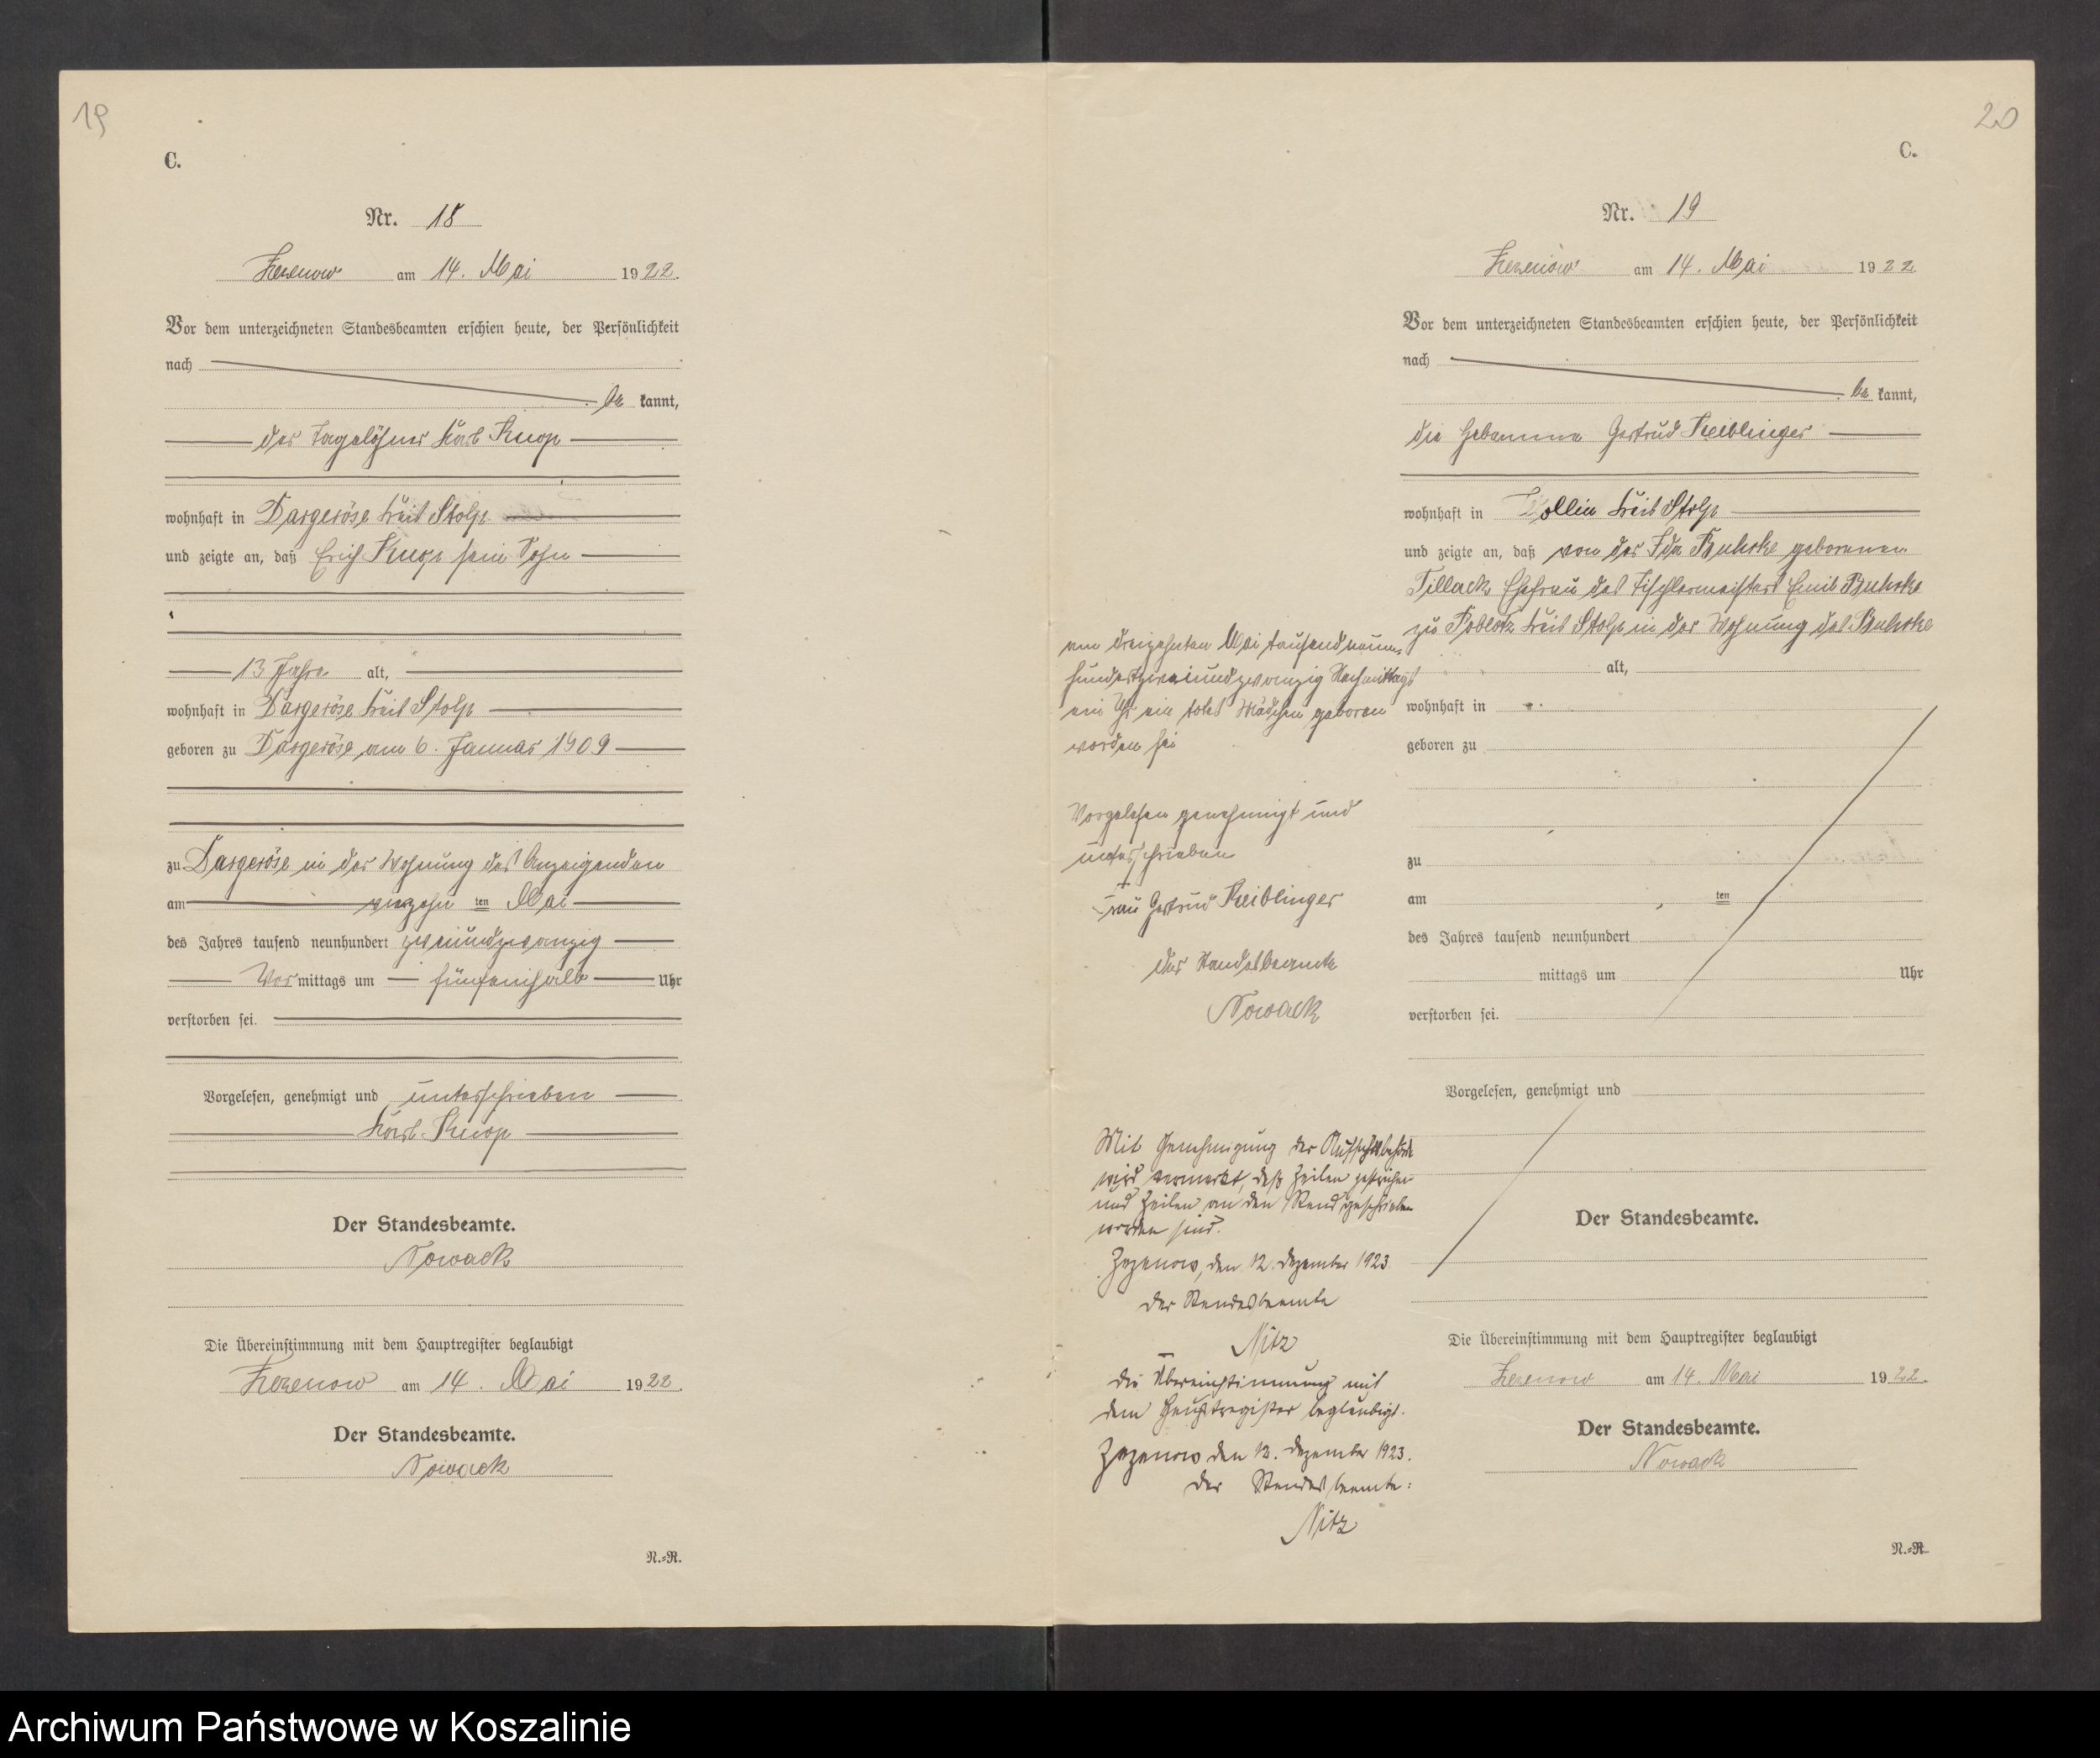 19
C.
Nr. 18
Zezenow am 14. Mai 1922.
Vor dem unterzeichneten Standesbeamten erschien heute, der Persönlichkeit
nach
be kannt,
der Tagelöhner Karl Knop
wohnhaft in Dargeröse Kreis Stolp
und zeigte an, daß Erich Knop sein Sohn
13 Jahre alt,
wohnhaft in Dargeröse Kreis Stolp
geboren zu Dargeröse am 6. Januar 1909
zu Dargeröse in der Wohnung des Anzeigenden
am vierzehn ten Mai
des Jahres tausend neunhundert zweiundzwanzig
Vor mittags um fünfeinhalb Uhr
verstorben sei.
Vorgelesen, genehmigt und unterschrieben
Karl Knop
Der Standesbeamte.
Nowack
Die Übereinstimmung mit dem Hauptregister beglaubigt
Zezenow am 14. Mai 1922.
Der Standesbeamte.
Nowack
N.=R.
20
C.
Nr. 19
Zezenow am 14. Mai 1922
Vor dem unterzeichneten Standesbeamten erschien heute, der Persönlichkeit
nach
be kannt,
die Hebamme Gertrud Keiblinger
wohnhaft in Zollin Kreis Stolp
und zeigte an, daß von der Ida Buhrke geborenen
Tillack Ehefrau des Tischlermeisters Emil Buhrke
zu Poblotz Kreis Stolp in der Wohnung des Buhrke
am dreizehnten Mai tausendneun-
hundertzweiundzwanzig Nachmittags
ein Uhr ein totes Mädchen geboren
worden sei
Vorgelesen genehmigt und
unterschrieben
Frau Gertrud Keiblinger
Der Standesbeamte
Nowack
alt,
wohnhaft in
geboren zu
zu
am ten
des Jahres tausend neunhundert
mittags um Uhr
verstorben sei.
Vorgelesen, genehmigt und
Der Standesbeamte.
Mit Genehmigung der Aufsichtsbehörde
wird vermerkt, daß Zeilen gestrichen
und Zeilen an den Rand geschrieben
worden sind.
Zezenow, den 12. Dezember 1923
Der Standesbeamte
Nitz
Die Übereinstimmung mit
dem Hauptregister beglaubigt.
Zezenow den 12. Dezember 1923.
Der Standesbeamte:
Nitz
Die Übereinstimmung mit dem Hauptregister beglaubigt
Zezenow am 14. Mai 1922.
Der Standesbeamte.
Nowack
N.=R.
Archiwum Państwowe w Koszalinie